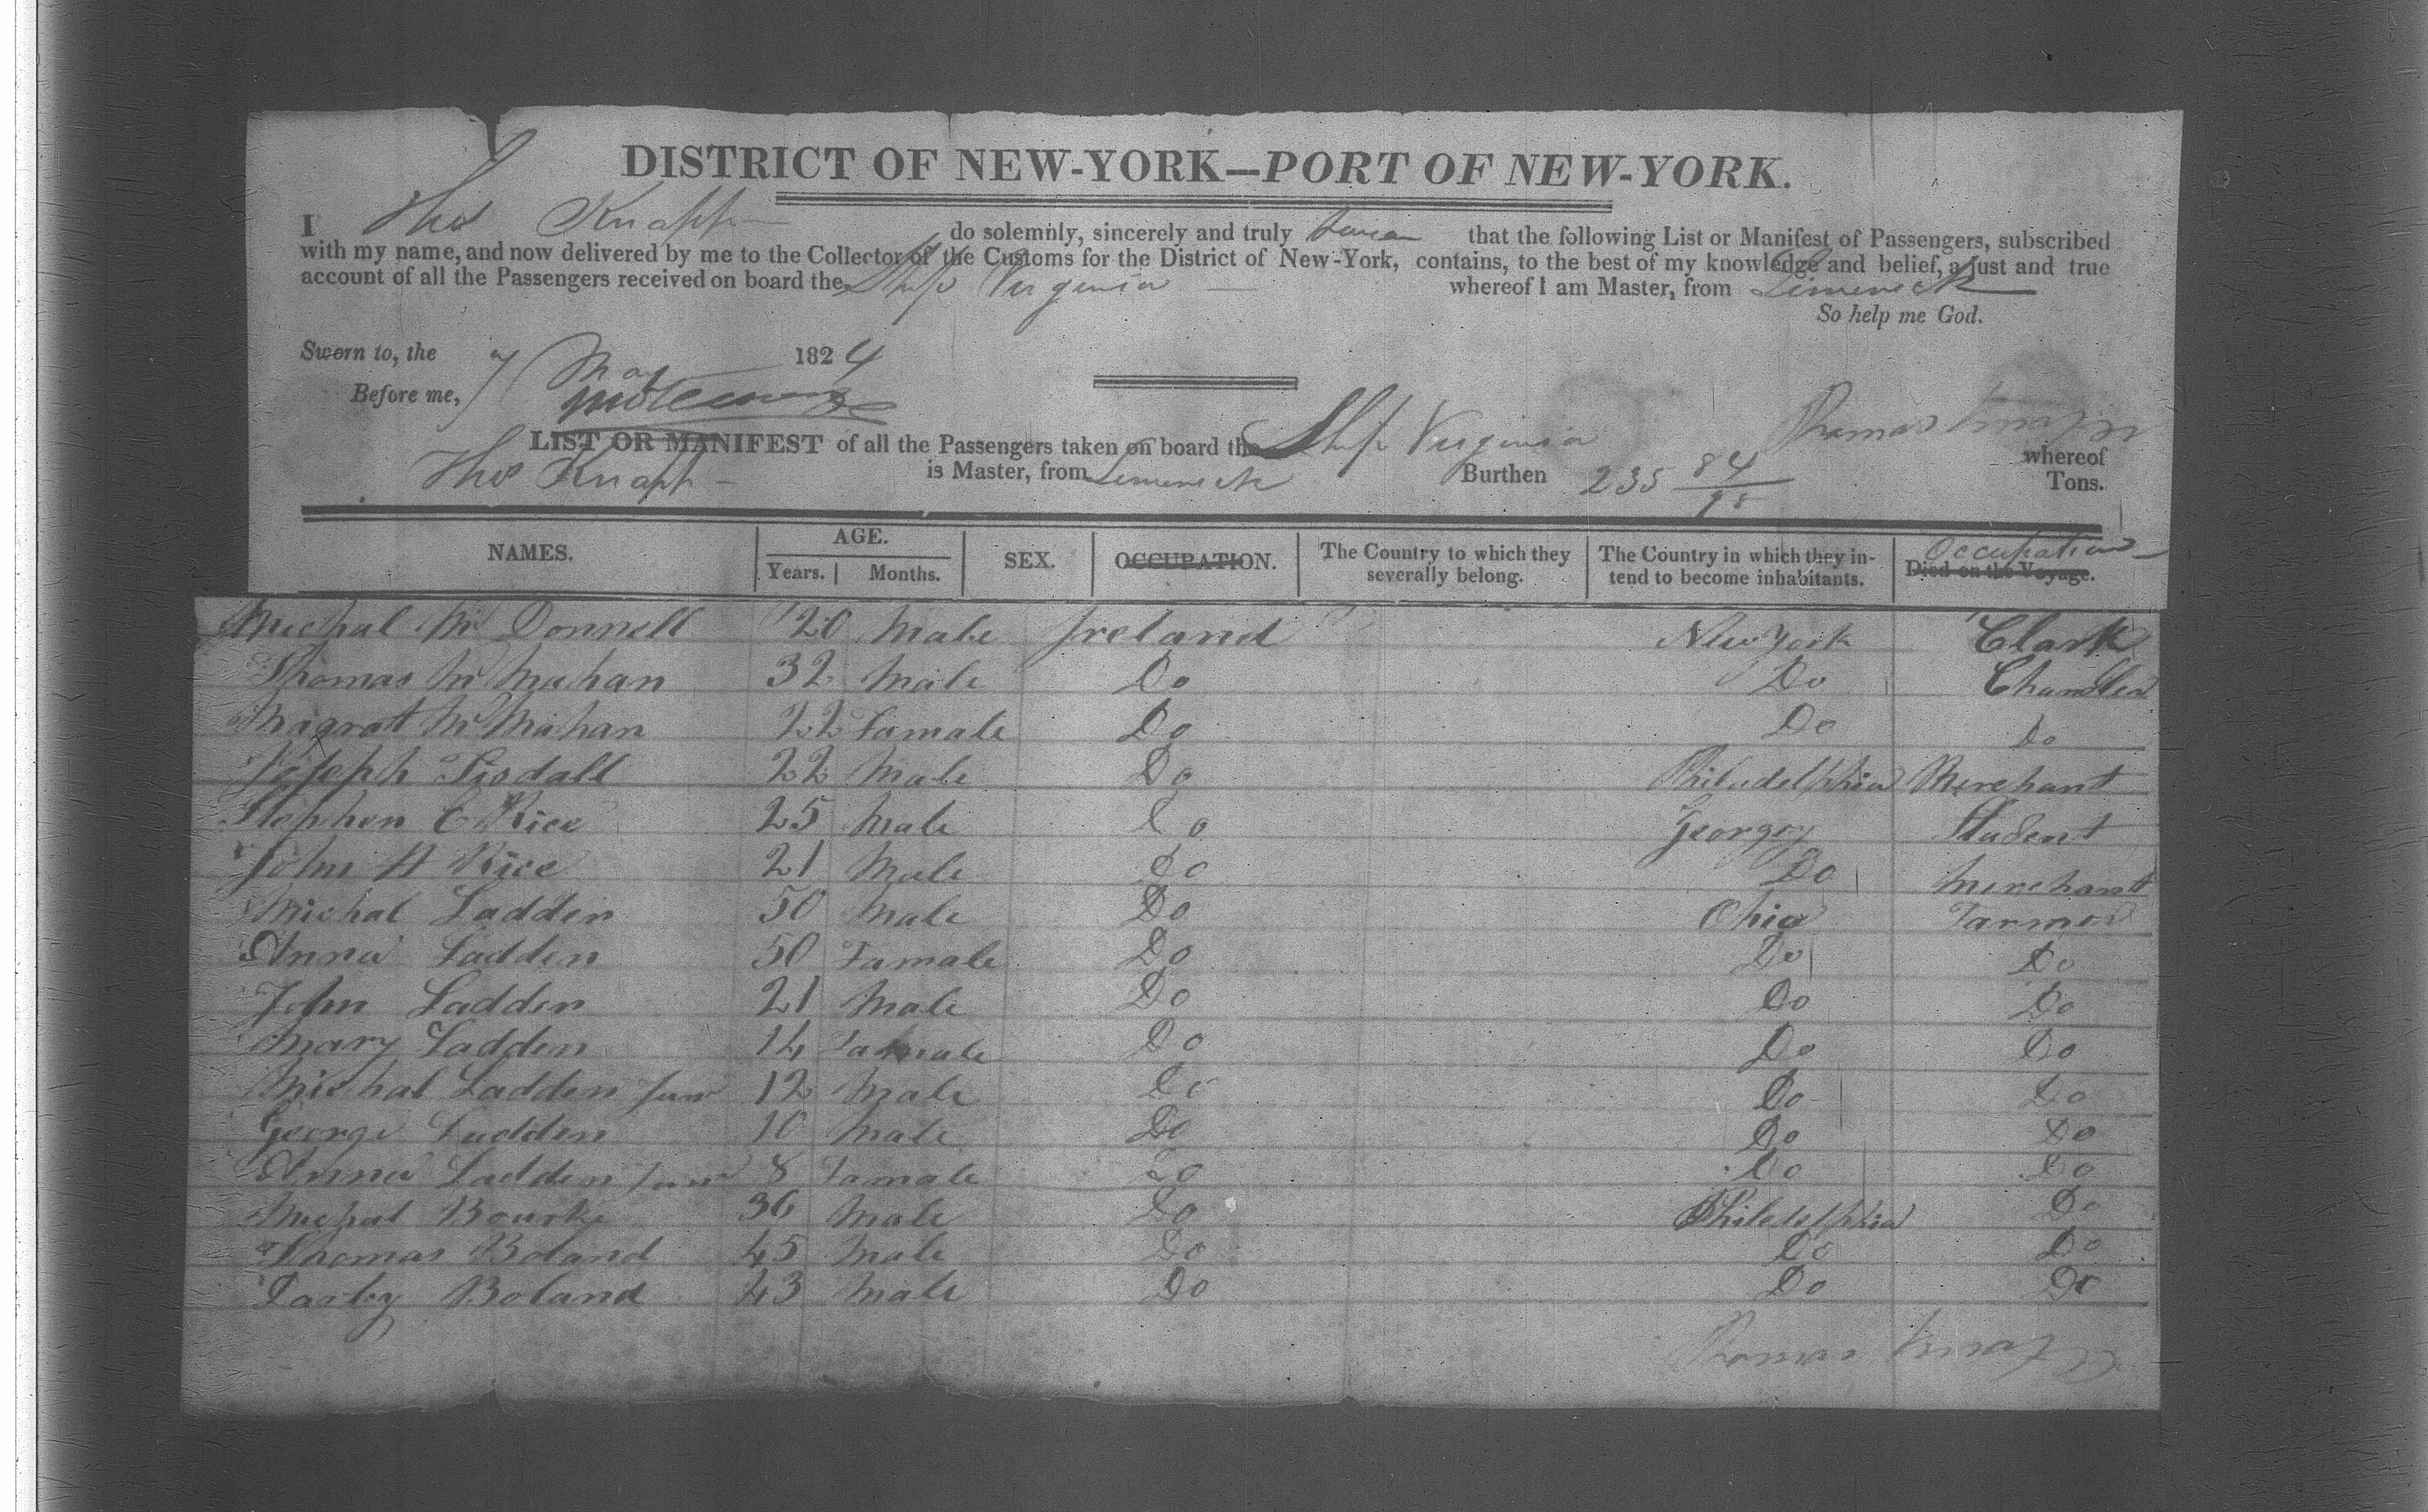 DISTRICT OF NEW-YORK—PORT OF NEW-YORK.
I Thos Knapp do solemnly, sincerely and truly swear that the following List or Manifest of Passengers, subscribed
with my name, and now delivered by me to the Collector of the Customs for the District of New-York, contains, to the best of my knowledge and belief, a just and true
account of all the Passengers received on board the Ship Virginia whereof I am Master, from Limerick
So help me God.
Sworn to, the 7 May 1824
Before me,
Thomas Knapp
LIST OR MANIFEST of all the Passengers taken on board the Ship Virginia whereof
Thos Knapp is Master, from Limerick Burthen 235 84/95 Tons.
NAMES. AGE. Years. Months. SEX. OCCUPATION. The Country to which they severally belong. The Country in which they intend to become inhabitants. Died on the Voyage. Occupation
Michal Mc Donnell 20 Male Ireland New York Clark
Thomas Mc Mahan 32 Male Do Do Chandler
Magrat Mc Mahan 22 Famale Do Do Do
Joseph Tisdall 22 Male Do Philadelphia Merchant
Stephen C Rice 25 Male Do Georgey Student
John H Rice 21 Male Do Do Merchant
Michal Ladden 50 Male Do Ohio Farmer
Anna Ladden 50 Famale Do Do Do
John Ladden 21 Male Do Do Do
Mary Ladden 14 Famale Do Do Do
Michal Ladden Junr 12 Male Do Do Do
George Ladden 10 Male Do Do Do
Anna Ladden Junr 8 Famale Do Do Do
Michal Bourke 36 Male Do Philadelphia Do
Thomas Boland 45 Male Do Do Do
Darby Boland 43 Male Do Do Do
Thomas Knapp